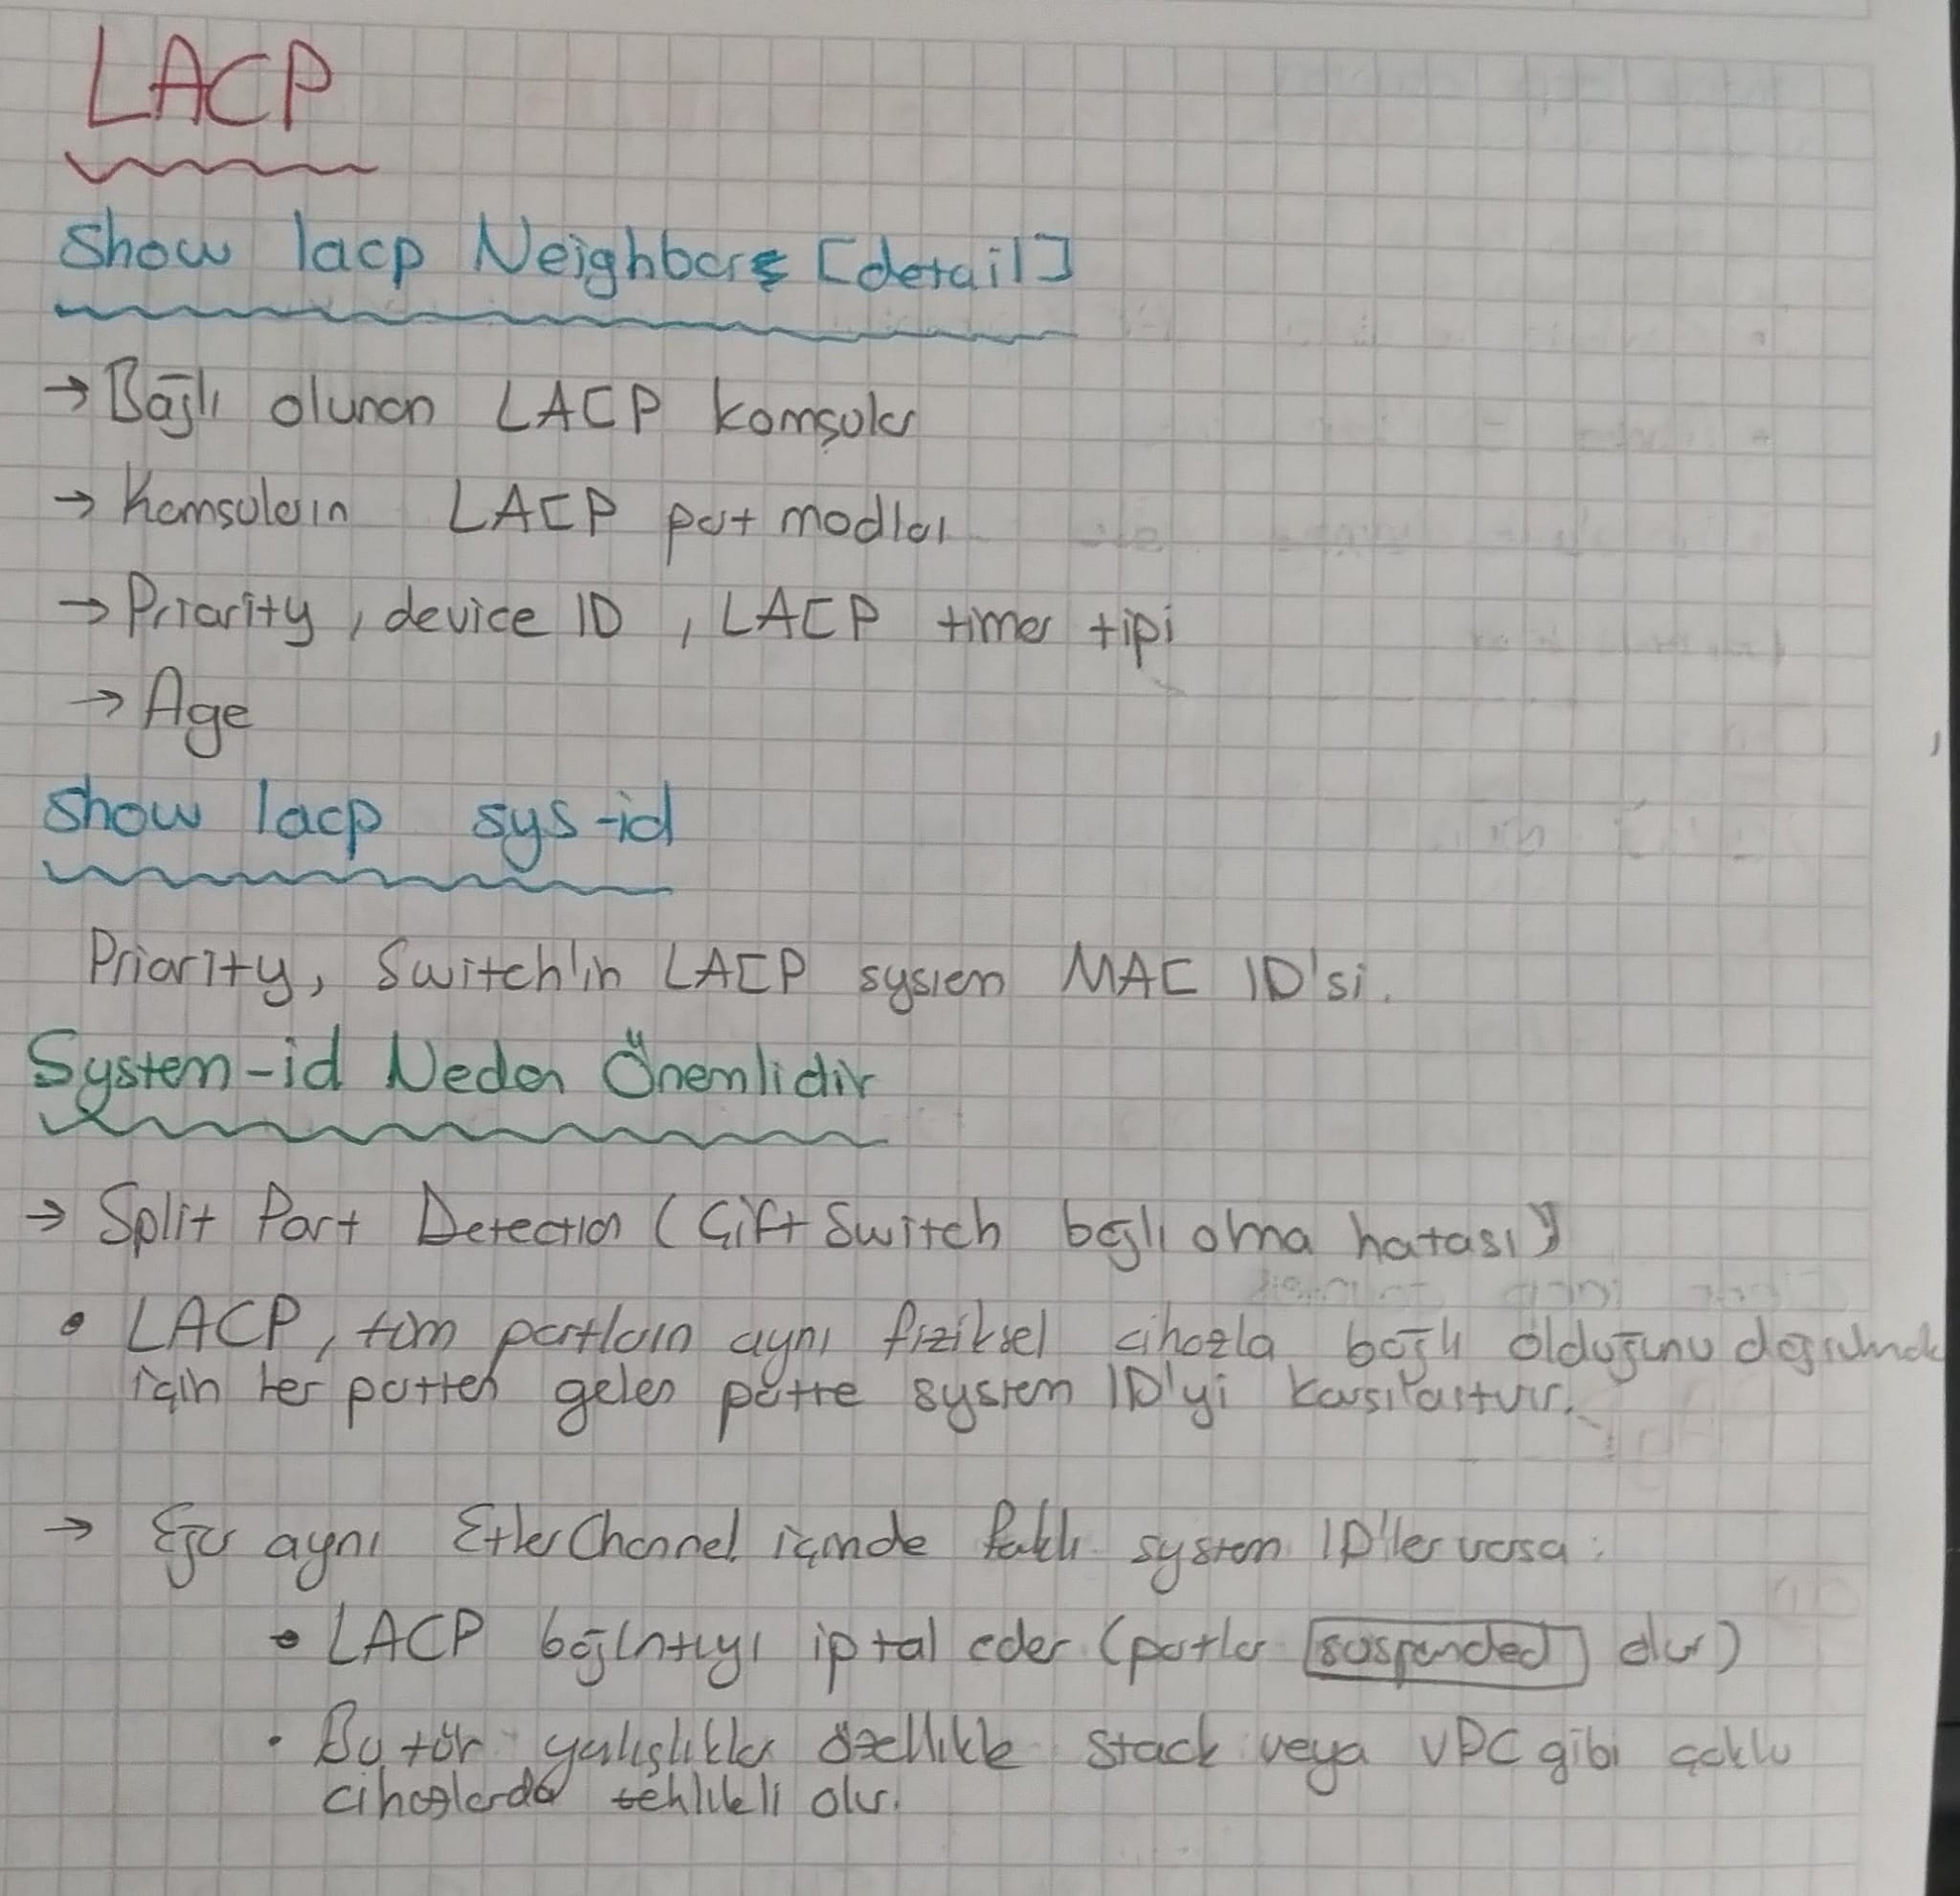 LACP
Show lacp Neighbors [detail]
→ Bağlı olunan LACP komşular
→ Komşuların LACP port modları
→ Priority, device ID, LACP timer tipi
→ Age
Show lacp sys-id
Priority, Switch'in LACP system MAC ID'si.
System-id Neden Önemlidir
→ Split Port Detection (Çift Switch bağlı olma hatası)
• LACP, tüm portların aynı fiziksel cihazla bağlı olduğunu doğrulamak
için her porttan gelen portte system ID'yi karşılaştırır.
→ Eğer aynı EtherChannel içinde farklı system ID'ler varsa:
• LACP bağlntıyı iptal eder (portlar suspended olur)
• Bu tür yanlışlıklar özellikle stack veya vPC gibi çoklu
cihazlarda tehlikeli olur.